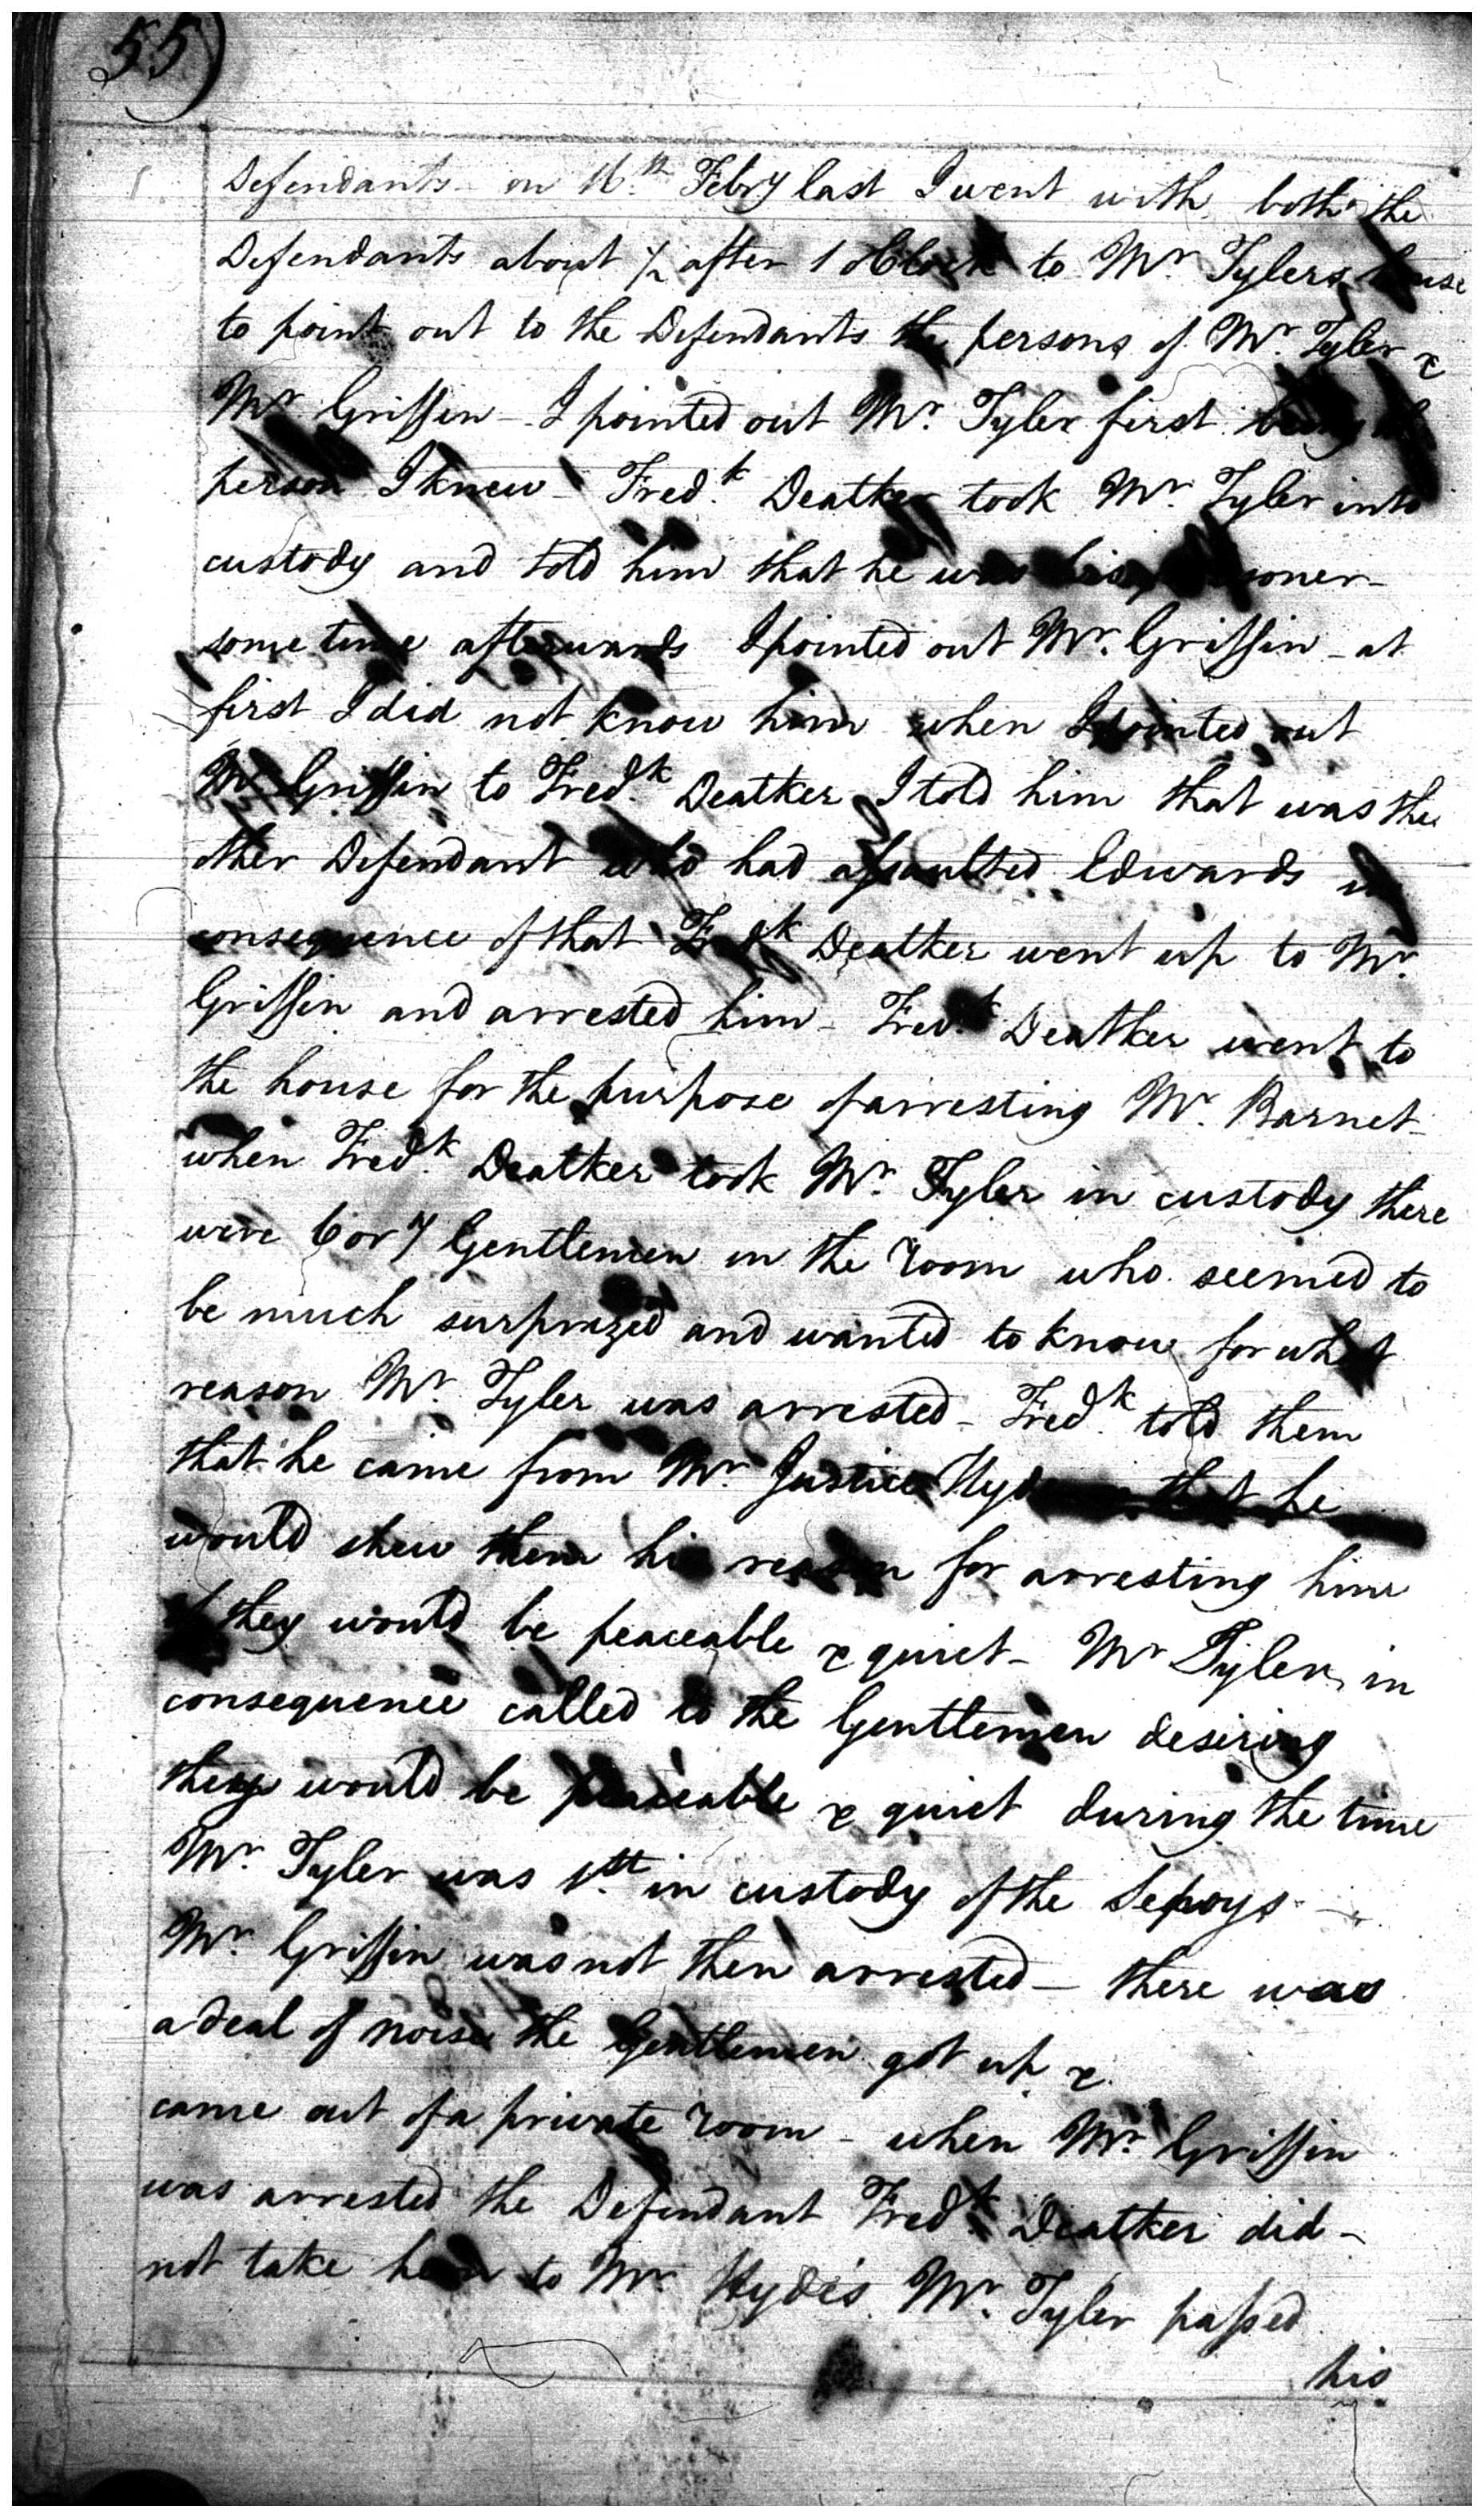 55)
Defendants on 16th Febry last I went with both the
Defendants about ½ after 1 oClock to Mr Tylers house
to point out to the Defendants the persons of Mr. Tyler &
Mr Griffin - I pointed out Mr. Tyler first being the
person I knew - Fred.k Deatker took Mr. Tyler into
custody and told him that he was his prisoner -
some time afterwards I pointed out Mr. Griffin - at
first I did not know him when I pointed out
Mr Griffin to Fred.k Deatker I told him that was the
other Defendant who had assaulted Edwards in
consequence of that Fred.k Deatker went up to Mr.
Griffin and arrested him - Fred.k Deatker went to
the house for the purpose of arresting Mr. Barnet -
when Fred.k Deatker took Mr. Tyler in custody there
were 6 or 7 Gentlemen in the room who seemed to
be much surprized and wanted to know for what
reason Mr. Tyler was arrested - Fred.k told them
that he came from Mr Justice Hyde that he
would shew them his reason for arresting him
if they would be peaceable & quiet - Mr Tyler in
consequence called to the Gentlemen desiring
they would be peaceable & quiet during the time
Mr. Tyler was 1st in custody of the Sepoys -
Mr. Griffin was not then arrested - there was
a deal of noise the Gentlemen got up &
came out of a private room - when Mr. Griffin
was arrested the Defendant Fred.k Deatker did -
not take him to Mr. Hyde's Mr. Tyler passed
his